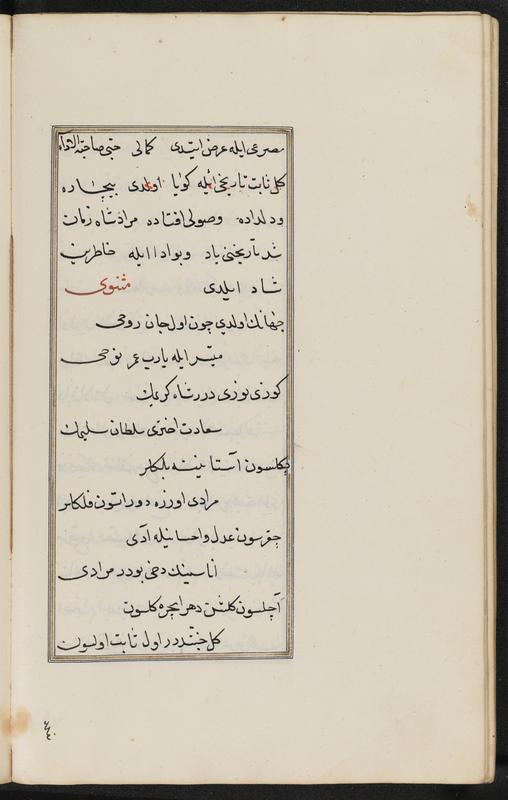 مصرعی ایله عرض ایتدی کمالی حتی صاحبة
کل ثابت تاریخی ایله کویا اولدی بیچاره
ودلداده وصولی افتاده مراد شاه زمان
شد تاریخنی یاد وبو ادا ایله خاطرین
شاد ایلدی مثنوی
جهانك اولدی چون اول جان روحی
میسر ایله یارب عمر نوحی
کوزی نوری در شاه کریمك
سعادت اختری سلطان سلیمك
آستانینه بلکلر
مرادی اوزره دورانسون فلکلر
چقرسون عدل واحسانیله آدی
اناسینك دخی بودر مرادی
آچلسون کلشن دهر ایچره کلسون
کل جنتدر اول ثابت اولسون